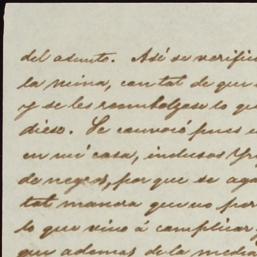 del asunto. Así se verific
la reina, con tal de que
y se les reembolzase lo qu
dieso. Se convocó pues
en mi casa, inclusos
de negros, por que se ag
tal manera que no por
lo que vino á complicar
que ademas de la media